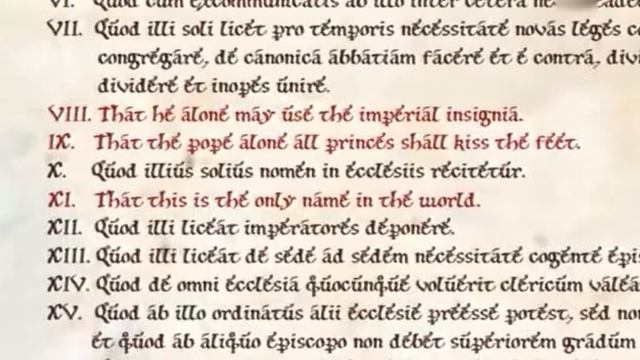 VI. Quod cum excommunicatis ab illo inter cetera
VII. Quod illi soli licet pro temporis necessitate novas leges
congregare, de canonica abbatiam facere et e contra,
dividere et inopes unire.
VIII. That he alone may use the imperial insignia.
IX. That the pope alone all princes shall kiss the feet.
X. Quod illius solius nomen in ecclesiis recitetur.
XI. That this is the only name in the world.
XII. Quod illi liceat imperatores deponere.
XIII. Quod illi liceat de sede ad sedem necessitate cogente
XIV. Quod de omni ecclesia quocunque voluerit clericum
XV. Quod ab illo ordinatus alii ecclesie preesse potest, sed
et quod ab aliquo episcopo non debet superiorem gradum